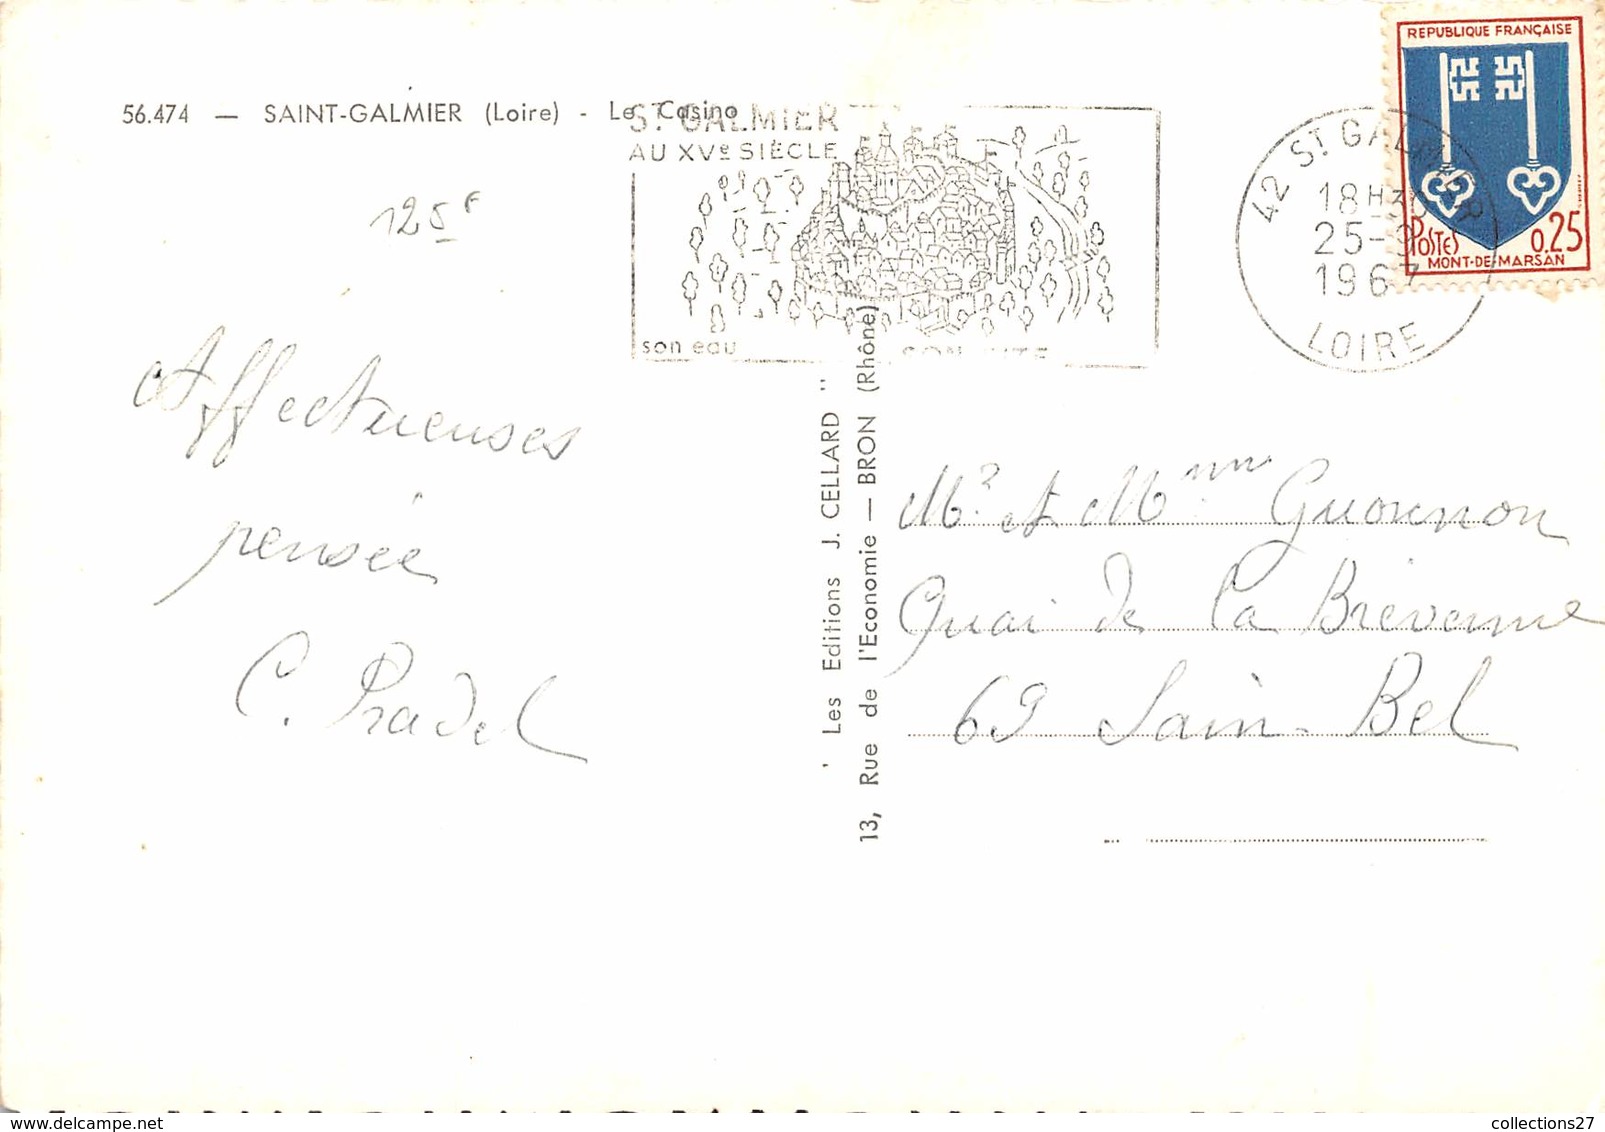 56.474 — SAINT-GALMIER (Loire) - Le Casino
ST GALMIER
AU XVe SIÈCLE
son eau
SON SITE
42 ST GALMIER
18H30
25-9
1967
LOIRE
REPUBLIQUE FRANÇAISE
POSTES
0.25
MONT-DE-MARSAN
125F
Affectueuses
pensée
C. Pradel
" Les Editions J. CELLARD "
13, Rue de l'Economie — BRON (Rhône)
Mr et Mme
Quai de la Brevenne
69 Sain Bel
collections27